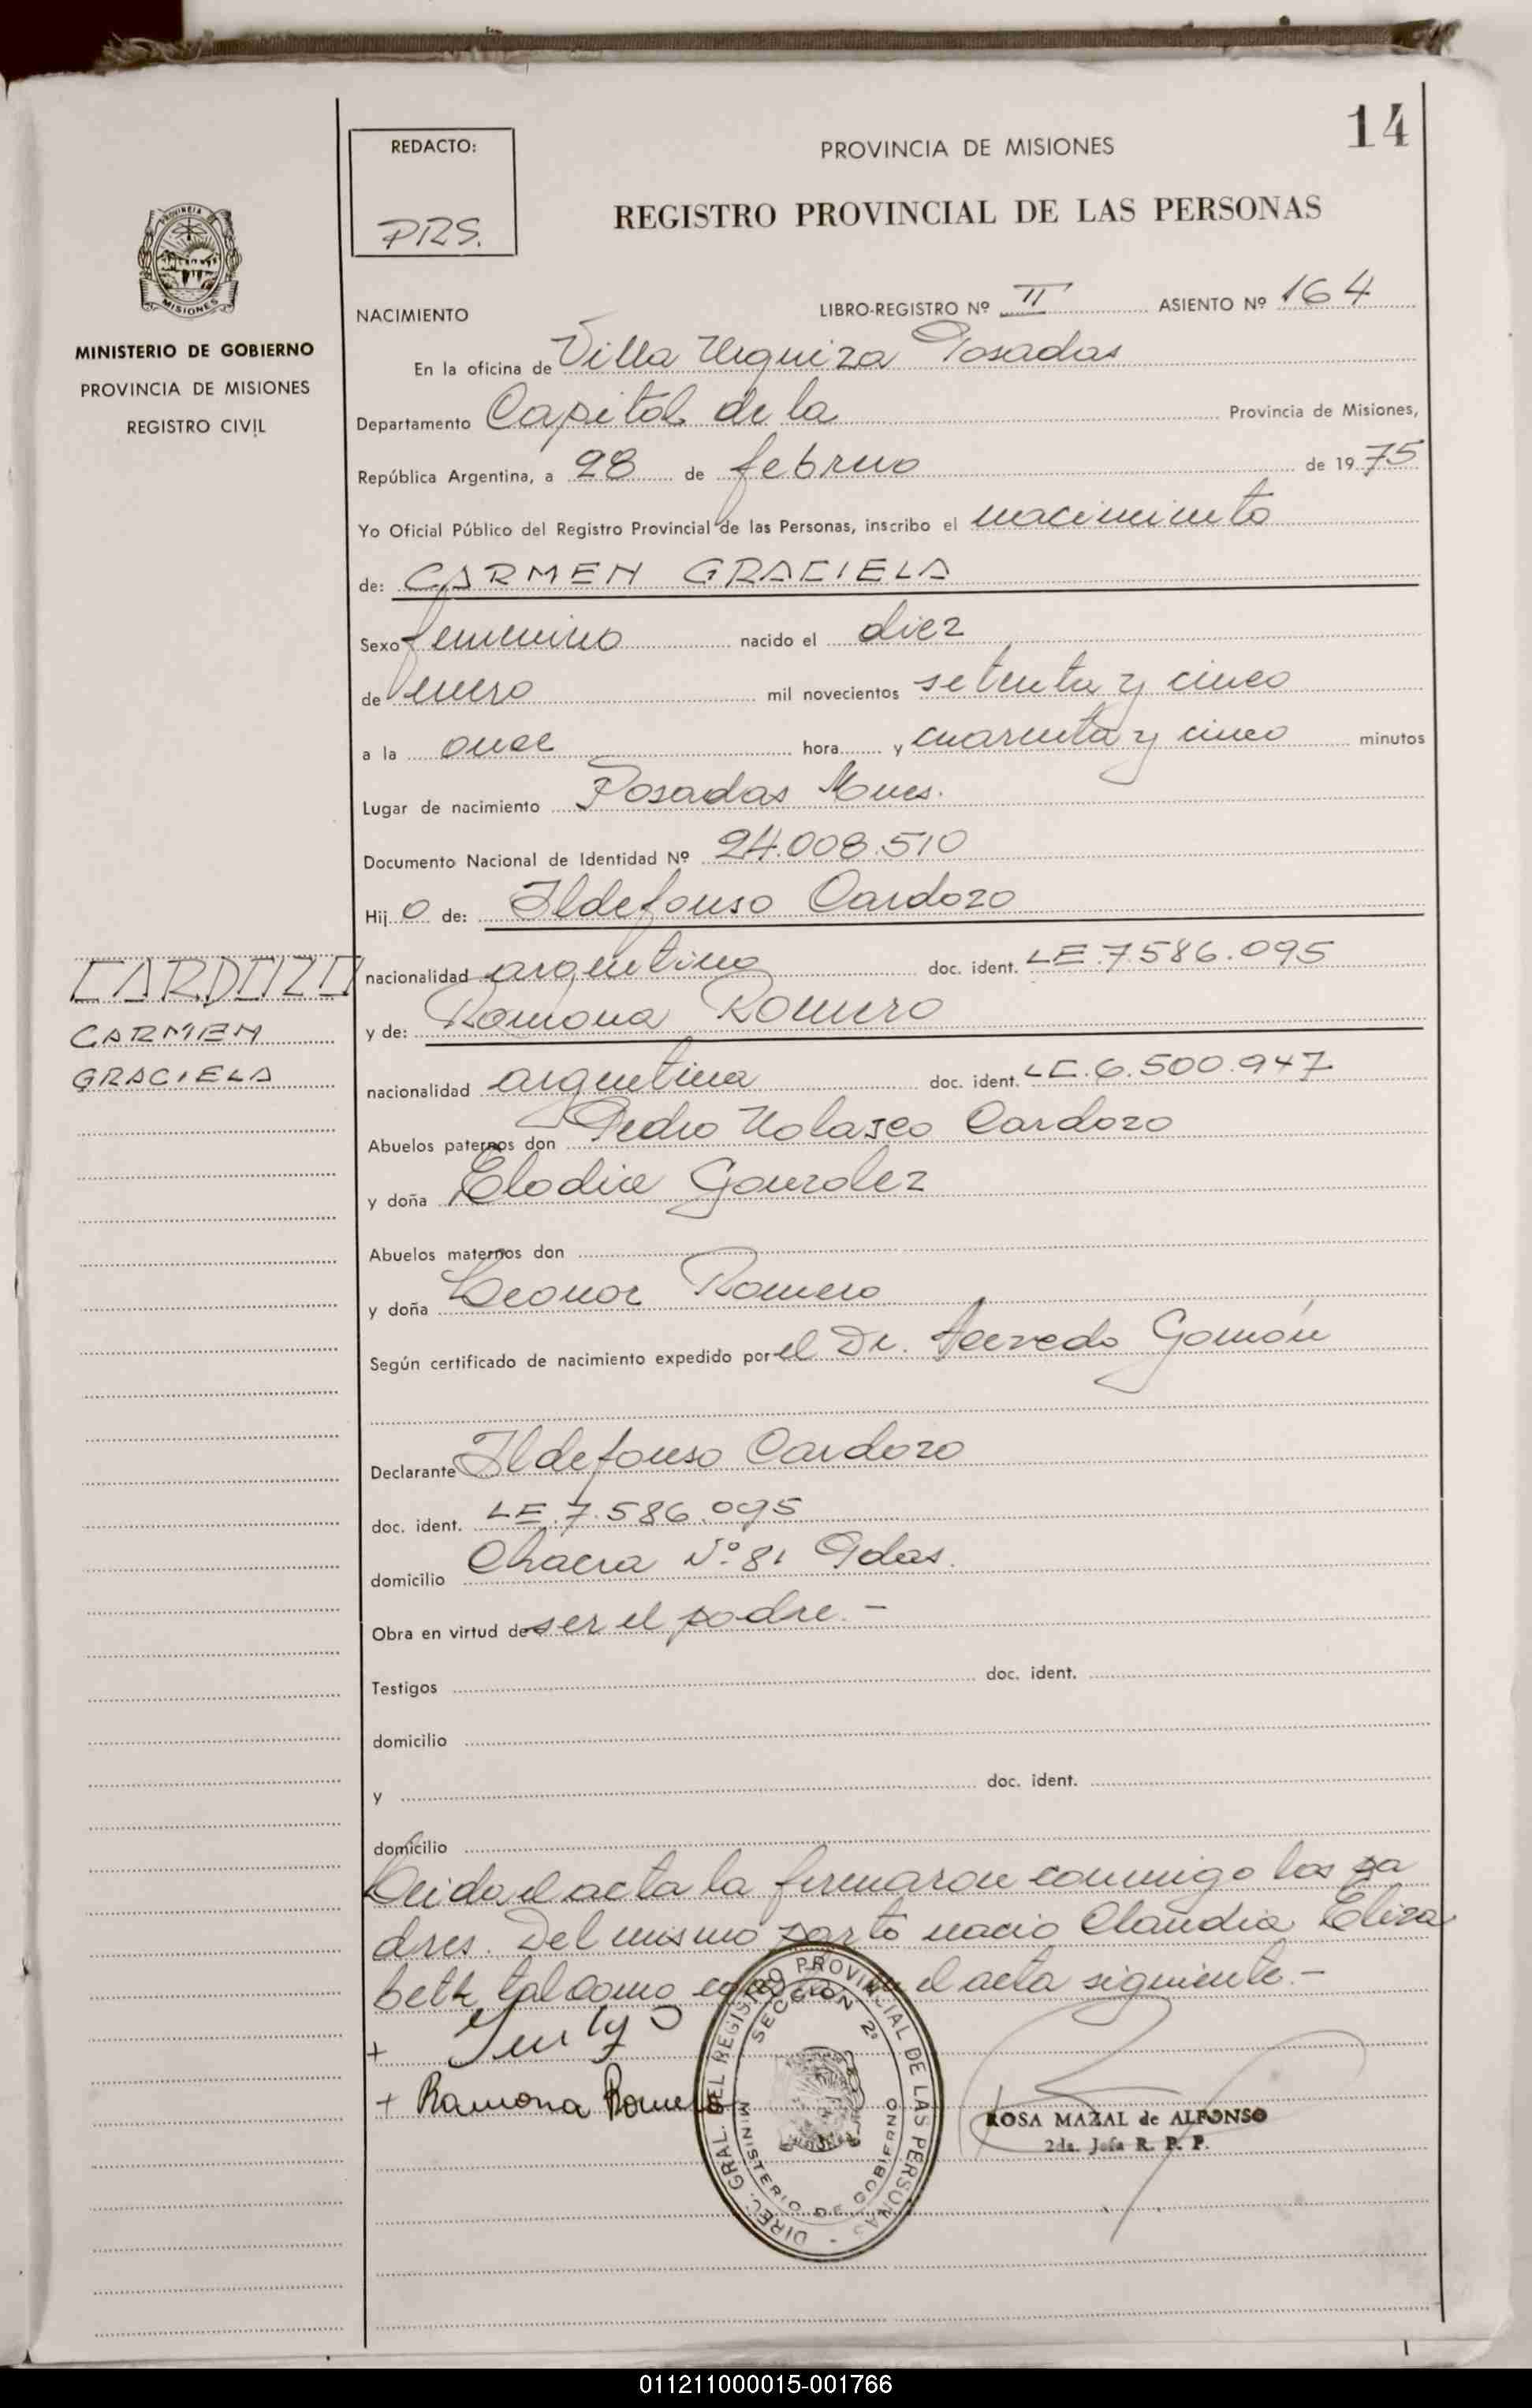 14
REDACTO:
PRS.
PROVINCIA DE MISIONES
REGISTRO PROVINCIAL DE LAS PERSONAS
PROVINCIA DE MISIONES
MINISTERIO DE GOBIERNO
PROVINCIA DE MISIONES
REGISTRO CIVIL
NACIMIENTO LIBRO-REGISTRO Nº II ASIENTO Nº 164
En la oficina de Villa Urquiza Posadas
Departamento Capital de la Provincia de Misiones,
República Argentina, a 28 de febrero de 1975
Yo Oficial Público del Registro Provincial de las Personas, inscribo el nacimiento
de: CARMEN GRACIELA
Sexo femenino nacido el diez
de enero mil novecientos setenta y cinco
a la once hora y cuarenta y cinco minutos
Lugar de nacimiento Posadas Mnes.
Documento Nacional de Identidad Nº 24.008.510
Hij o de: Ildefonso Cardozo
CARDOZO
CARMEN
GRACIELA
nacionalidad argentino doc. ident. LE.7.586.095
y de: Ramona Romero
nacionalidad argentina doc. ident. LC.6.500.947
Abuelos paternos don Pedro Nolasco Cardozo
y doña Elodia Gonzalez
Abuelos maternos don
y doña Leonor Romero
Según certificado de nacimiento expedido por el Dr. Acevedo
Declarante Ildefonso Cardozo
doc. ident. LE.7.586.095
domicilio Chacra Nº 81 Pdas.
Obra en virtud de ser el padre.-
Testigos doc. ident.
domicilio
y doc. ident.
domicilio
Leida el acta la firmaron conmigo los pa
dres. Del mismo parto nacio Claudia Eliza
beth tal como el acta siguiente.-
+
+ Ramona Romero
DIREC. GRAL. DEL REGISTRO PROVINCIAL DE LAS PERSONAS
SECCION 2ª
MINISTERIO DE GOBIERNO
ROSA MAZAL de ALFONSO
2da. Jefa R. P. P.
011211000015-001766